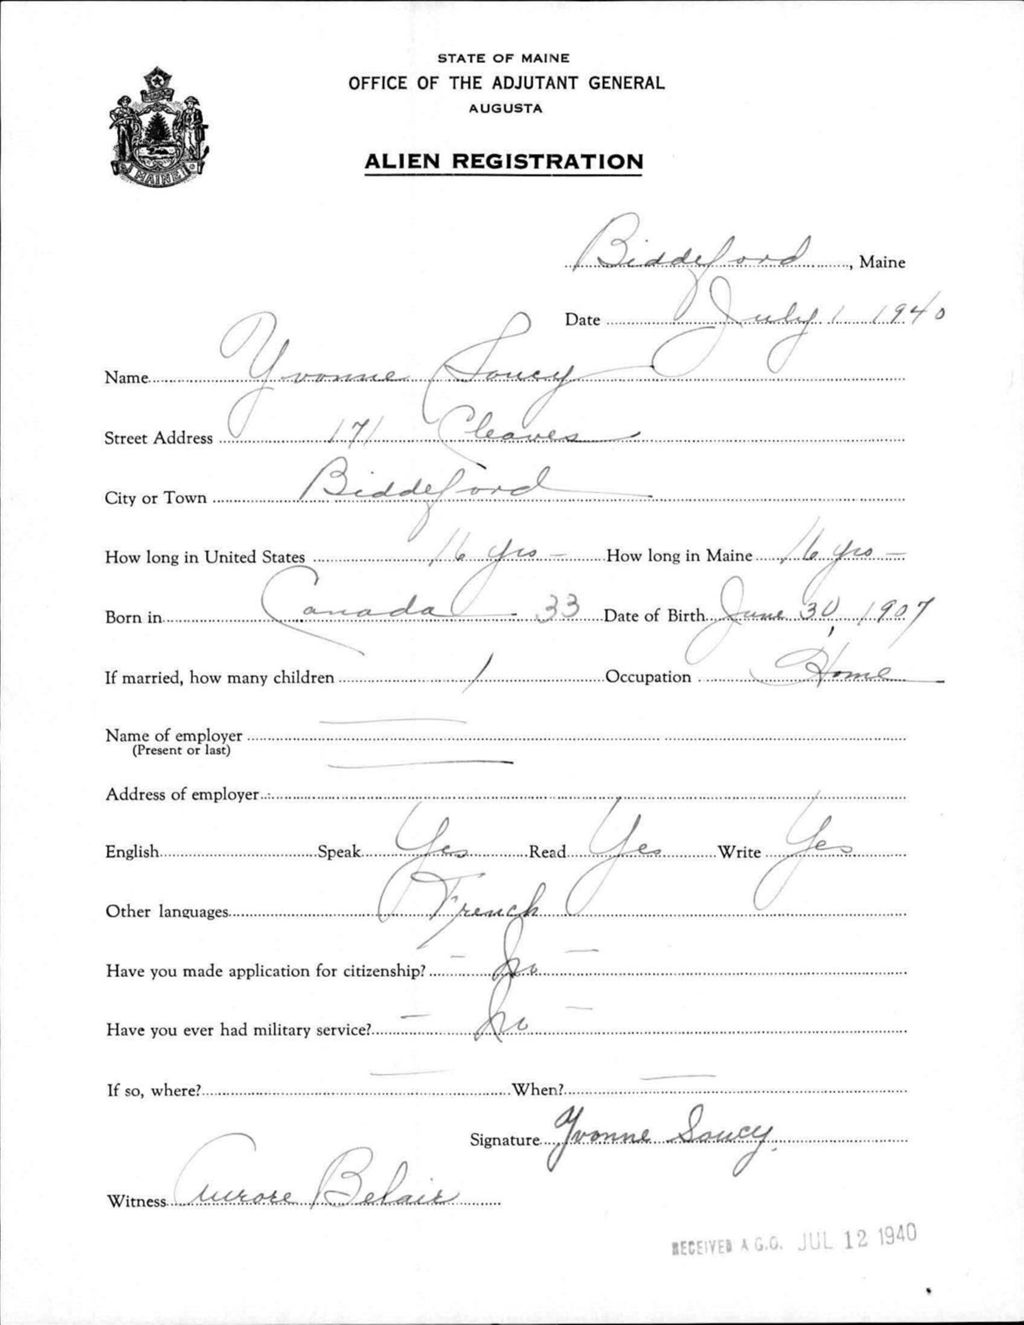 STATE OF MAINE
OFFICE OF THE ADJUTANT GENERAL
AUGUSTA
MAINE
ALIEN REGISTRATION
Biddeford, Maine
Date July 1 1940
Name Yvonne Soucy
Street Address 171 Cleaves
City or Town Biddeford
How long in United States 16 yrs — How long in Maine 16 yrs —
Born in Canada - 33 Date of Birth June 30, 1907
If married, how many children 1 Occupation Home
Name of employer —
(Present or last)
Address of employer —
English Speak Yes Read Yes Write Yes
Other languages French
Have you made application for citizenship? — No —
Have you ever had military service? — No —
If so, where? — When? —
Signature Yvonne Soucy
Witness Aurore Belair
RECEIVED A.G.O. JUL 12 1940